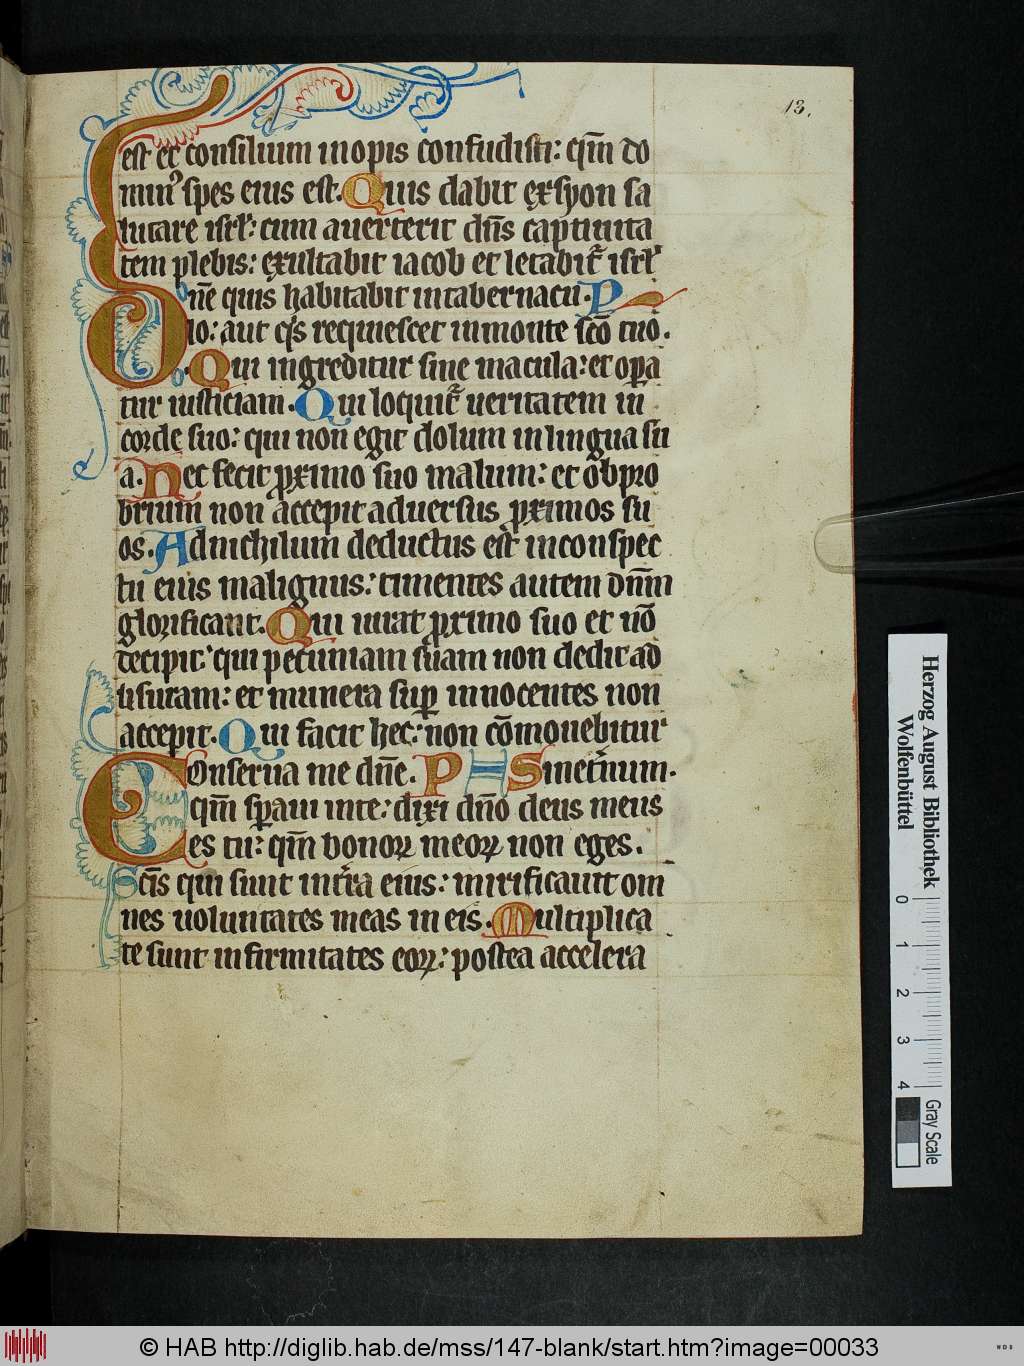 13.
est et consilium inopis confudisti: qm̄ do
minꝰ spes eius est. Quis dabit ex syon sa
lutare isrl̄: cum auerterit dn̄s captiuita
tem plebis: exultabit iacob et letabit᷑ isrl̄
Dn̄e quis habitabit in tabernacu P
lo: aut qͥs requiescet in monte sc̄o tuo.
Qui ingreditur sine macula: et opa̅
tur iusticiam. Qui loquit᷑ ueritatem in
corde suo: qui non egit dolum in lingua su
a. Nec fecit p̄ximo suo malum: et obpro
brium non accepit aduersus p̄ximos su
os. Ad nichilum deductus est in conspec
tu eius malignus: timentes autem dn̄m
glorificant. Qui iurat p̄ximo suo et nō
decipit: qui pecuniam suam non dedit ad
usuram: et munera sup̄ innocentes non
accepit. Qui facit hec: non cōmouebitur
Conserua me dn̄e. PHS in et̄num.
qm̄ sp̄aui in te: dixi dn̄o deus meus
es tu: qm̄ bonoꝝ meoꝝ non eges.
Sc̄is qui sunt in tr̄a eius: mirificauit om
nes uoluntates meas in eis. Multiplica
te sunt infirmitates eoꝝ: postea accelera
Herzog August Bibliothek
Wolfenbüttel
0 1 2 3 4
Gray Scale
© HAB http://diglib.hab.de/mss/147-blank/start.htm?image=00033